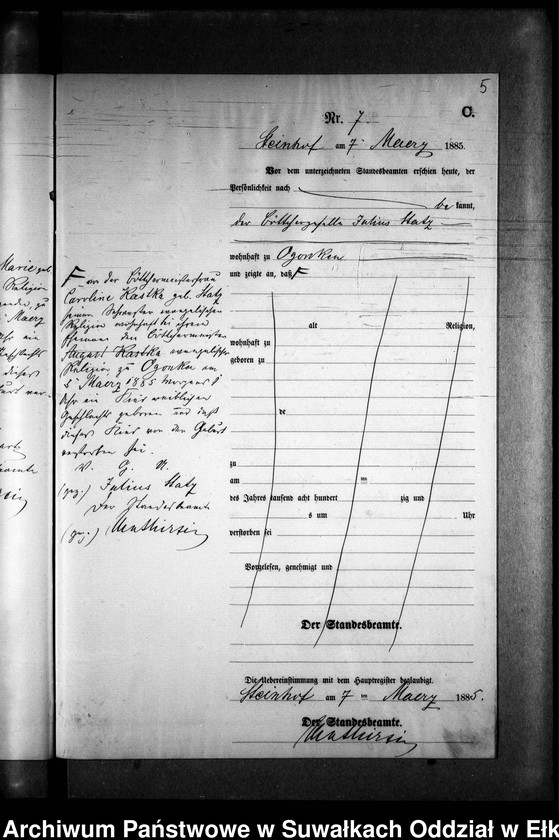 5
C.
Nr. 7
Steinhof am 7. Maerz 1885.
Vor dem unterzeichneten Standesbeamten erschien heute, der
Persönlichkeit nach
be kannt,
der Böttchergeselle Julius Statz
wohnhaft zu Ogonken
und zeigte an, daß F
F von der Böttchermeisterfrau
Caroline Kastka geb. Statz
seiner Schwester evangelischer
Religion wohnhaft bei ihrem
Ehemann dem Böttchermeister
August Kastka evangelischer
Religion zu Ogonken am
5 Maerz 1885 Morgens
Uhr ein Kind weiblichen
Geschlechts geboren und daß
dieses Kind von der Geburt
verstorben sei.
V. G. U.
(gez.) Julius Statz
Der Standesbeamte
(gez.)
alt Religion,
wohnhaft zu
geboren zu
de
zu
am ten
des Jahres tausend acht hundert zig und
s um Uhr
verstorben sei
Vorgelesen, genehmigt und
Der Standesbeamte.
Die Uebereinstimmung mit dem Hauptregister beglaubigt.
Steinhof am 7 ten Maerz 1885.
Der Standesbeamte.
Archiwum Państwowe w Suwałkach Oddział w Ełk